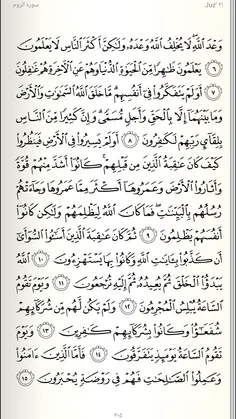 سورة الروم
Juz' ٢١
وَعْدَ ٱللَّهِ لَا يُخْلِفُ ٱللَّهُ وَعْدَهُۥ وَلَٰكِنَّ أَكْثَرَ ٱلنَّاسِ لَا يَعْلَمُونَ
٦ يَعْلَمُونَ ظَٰهِرًا مِّنَ ٱلْحَيَوٰةِ ٱلدُّنْيَا وَهُمْ عَنِ ٱلْءَاخِرَةِ هُمْ غَٰفِلُونَ
٧ أَوَلَمْ يَتَفَكَّرُوا۟ فِىٓ أَنفُسِهِم مَّا خَلَقَ ٱللَّهُ ٱلسَّمَٰوَٰتِ وَٱلْأَرْضَ
وَمَا بَيْنَهُمَآ إِلَّا بِٱلْحَقِّ وَأَجَلٍ مُّسَمًّى وَإِنَّ كَثِيرًا مِّنَ ٱلنَّاسِ
بِلِقَآئِ رَبِّهِمْ لَكَٰفِرُونَ ٨ أَوَلَمْ يَسِيرُوا۟ فِى ٱلْأَرْضِ فَيَنظُرُوا۟
كَيْفَ كَانَ عَٰقِبَةُ ٱلَّذِينَ مِن قَبْلِهِمْ كَانُوٓا۟ أَشَدَّ مِنْهُمْ قُوَّةً
وَأَثَارُوا۟ ٱلْأَرْضَ وَعَمَرُوهَآ أَكْثَرَ مِمَّا عَمَرُوهَا وَجَآءَتْهُمْ
رُسُلُهُم بِٱلْبَيِّنَٰتِ فَمَا كَانَ ٱللَّهُ لِيَظْلِمَهُمْ وَلَٰكِن كَانُوٓا۟
أَنفُسَهُمْ يَظْلِمُونَ ٩ ثُمَّ كَانَ عَٰقِبَةَ ٱلَّذِينَ أَسَٰٓـُٔوا۟ ٱلسُّوٓأَىٰٓ
أَن كَذَّبُوا۟ بِـَٔايَٰتِ ٱللَّهِ وَكَانُوا۟ بِهَا يَسْتَهْزِءُونَ ١٠ ٱللَّهُ
يَبْدَؤُا۟ ٱلْخَلْقَ ثُمَّ يُعِيدُهُۥ ثُمَّ إِلَيْهِ تُرْجَعُونَ ١١ وَيَوْمَ تَقُومُ
ٱلسَّاعَةُ يُبْلِسُ ٱلْمُجْرِمُونَ ١٢ وَلَمْ يَكُن لَّهُم مِّن شُرَكَآئِهِمْ
شُفَعَٰٓؤُا۟ وَكَانُوا۟ بِشُرَكَآئِهِمْ كَٰفِرِينَ ١٣ وَيَوْمَ
تَقُومُ ٱلسَّاعَةُ يَوْمَئِذٍ يَتَفَرَّقُونَ ١٤ فَأَمَّا ٱلَّذِينَ ءَامَنُوا۟
وَعَمِلُوا۟ ٱلصَّٰلِحَٰتِ فَهُمْ فِى رَوْضَةٍ يُحْبَرُونَ ١٥
٤٠٥